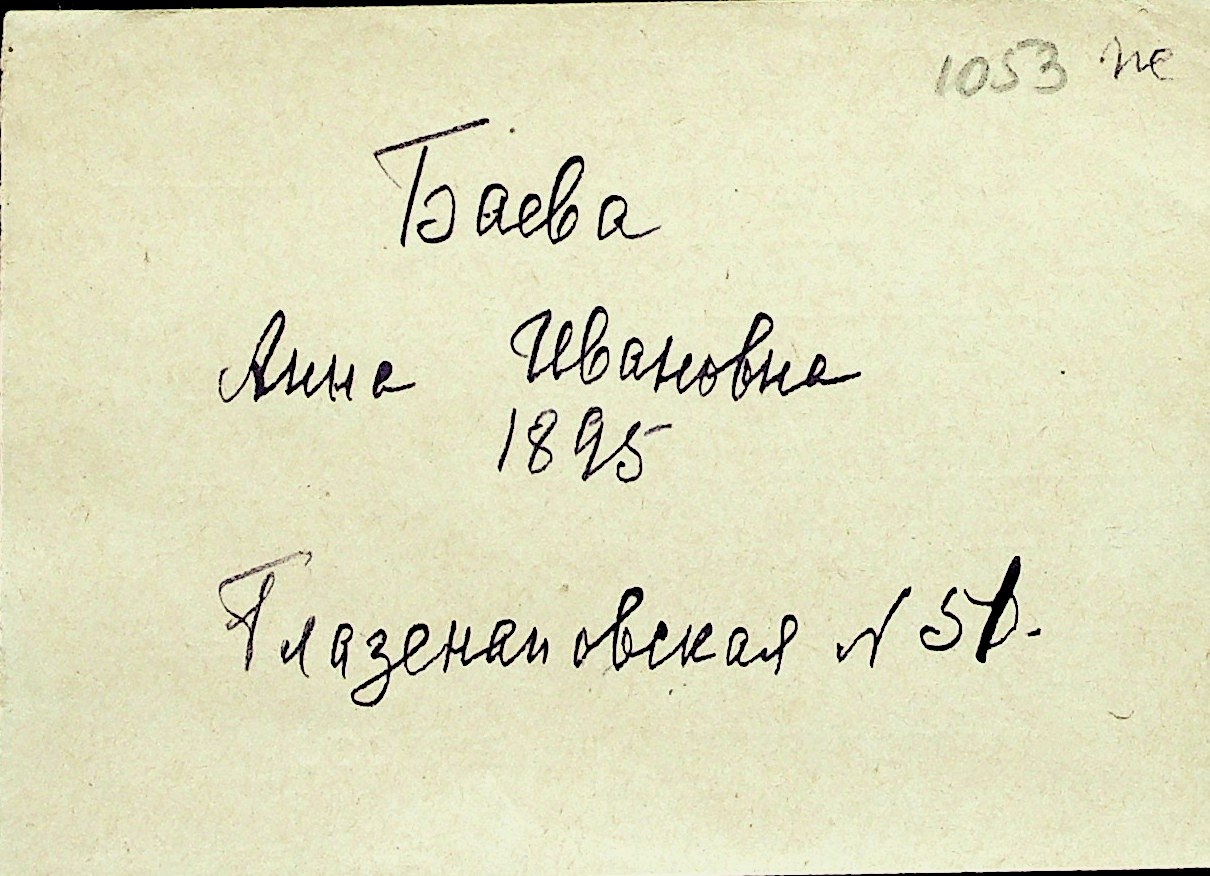 1053 пе
Баева
Анна Ивановна
1895
Глазенаповская N